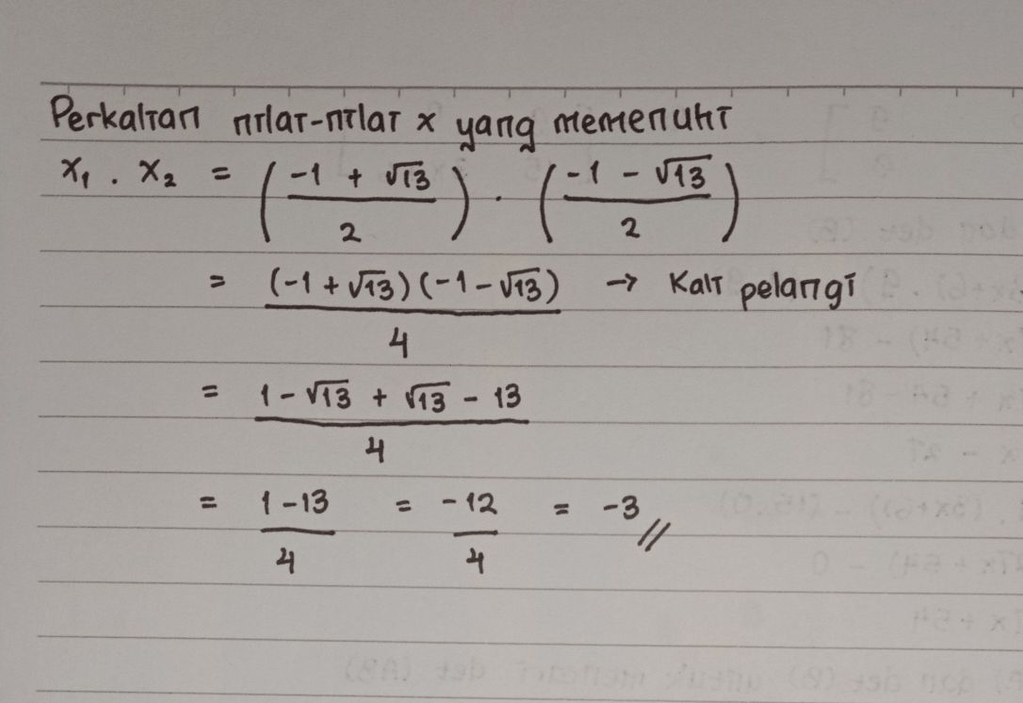 Perkalian nilai-nilai x yang memenuhi
x₁ . x₂ = ((-1 + √13)/2) . ((-1 - √13)/2)
= (-1 + √13)(-1 - √13)/4 → Kali pelangi
= (1 - √13 + √13 - 13)/4
= (1 - 13)/4 = -12/4 = -3 //